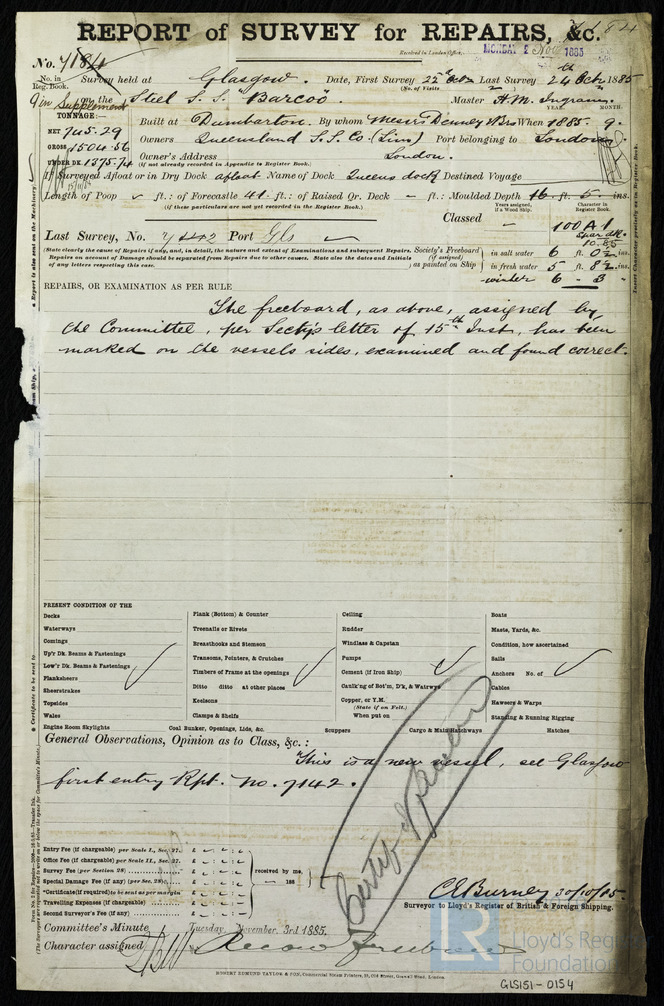 REPORT of SURVEY for REPAIRS, &c. 7184
Received in London Office, MONDAY 2 Nov 1885
No. 7184
No. in Reg. Book. Survey held at Glasgow. Date, First Survey 22nd Octr Last Survey 24th Octr 1885
(No. of Visits
9 in Supplement on the Steel S. S. Barcoo. Master A. M. Ingram.
TONNAGE:— Built at Dumbarton. By whom Messrs Denny & Bros When 1885. 9.
YEAR. MONTH.
NET 745.29
GROSS 1504.56 Owners Queensland S. S. Co. (Lim) Port belonging to London.
UNDER DK. 1375.74 Owner's Address London.
(if not already recorded in Appendix to Register Book.)
If Surveyed Afloat or in Dry Dock afloat Name of Dock Queens dock Destined Voyage
Length of Poop ft.: of Forecastle 41 ft.: of Raised Qr. Deck - ft.: Moulded Depth 16 ft. 5 ins.
(if these particulars are not yet recorded in the Register Book.)
Years assigned, if a Wood Ship. Character in Register Book.
Classed - 100 A1
Spar dk.
10.85
Last Survey, No. 7142 Port Gls
(State clearly the cause of Repairs if any, and, in detail, the nature and extent of Examinations and subsequent Repairs. Repairs on account of Damage should be separated from Repairs due to other causes. State also the dates and Initials of any letters respecting this case.
Society's Freeboard (if assigned) as painted on Ship
in salt water 6 ft. 0½ ins.
in fresh water 5 ft. 8½ ins.
winter 6 - 3 "
REPAIRS, OR EXAMINATION AS PER RULE
The freeboard, as above, assigned by
the Committee, per Secty's letter of 15th Inst, has been
marked on the vessels sides, examined and found correct.
PRESENT CONDITION OF THE
Decks
Waterways
Comings
Up'r Dk. Beams & Fastenings
Low'r Dk. Beams & Fastenings
Planksheers
Sheerstrakes
Topsides
Wales
Engine Room Skylights
Plank (Bottom) & Counter
Treenails or Rivets
Breasthooks and Stemson
Transoms, Pointers, & Crutches
Timbers of Frame at the openings
Ditto ditto at other places
Keelsons
Clamps & Shelfs
Coal Bunker, Openings, Lids, &c.
Ceiling
Rudder
Windlass & Capstan
Pumps
Cement (if Iron Ship)
Caulk'ng of Bot'm, D'k, & Watrwys
Copper, or Y.M.
(State if on Felt.)
When put on
Scuppers
Boats
Masts, Yards, &c.
Condition, how ascertained
Sails
Anchors No. of
Cables
Hawsers & Warps
Standing & Running Rigging
Cargo & Main Hatchways Hatches
General Observations, Opinion as to Class, &c. :
This is a new vessel, see Glasgow
first entry Rpt. No. 7142.
Entry Fee (if chargeable) per Scale I., Sec. 27. £
Office Fee (if chargeable) per Scale II., Sec. 27. £
Survey Fee (per Section 28) £
Special Damage Fee (if any) (per Sec. 28) £
*Certificate (if required) to be sent as per margin £
Travelling Expenses (if chargeable) £
Second Surveyor's Fee (if any) £
received by me,
188
C E Burney 30/10/85.
Surveyor to Lloyd's Register of British & Foreign Shipping.
Committee's Minute Tuesday, November, 3rd 1885.
Character assigned
ROBERT EDMUND TAYLOR & SON, Commercial Steam Printers, 19, Old Street, Goswell Road, London.
LR
Lloyd's Register
Foundation
GLS151-0154